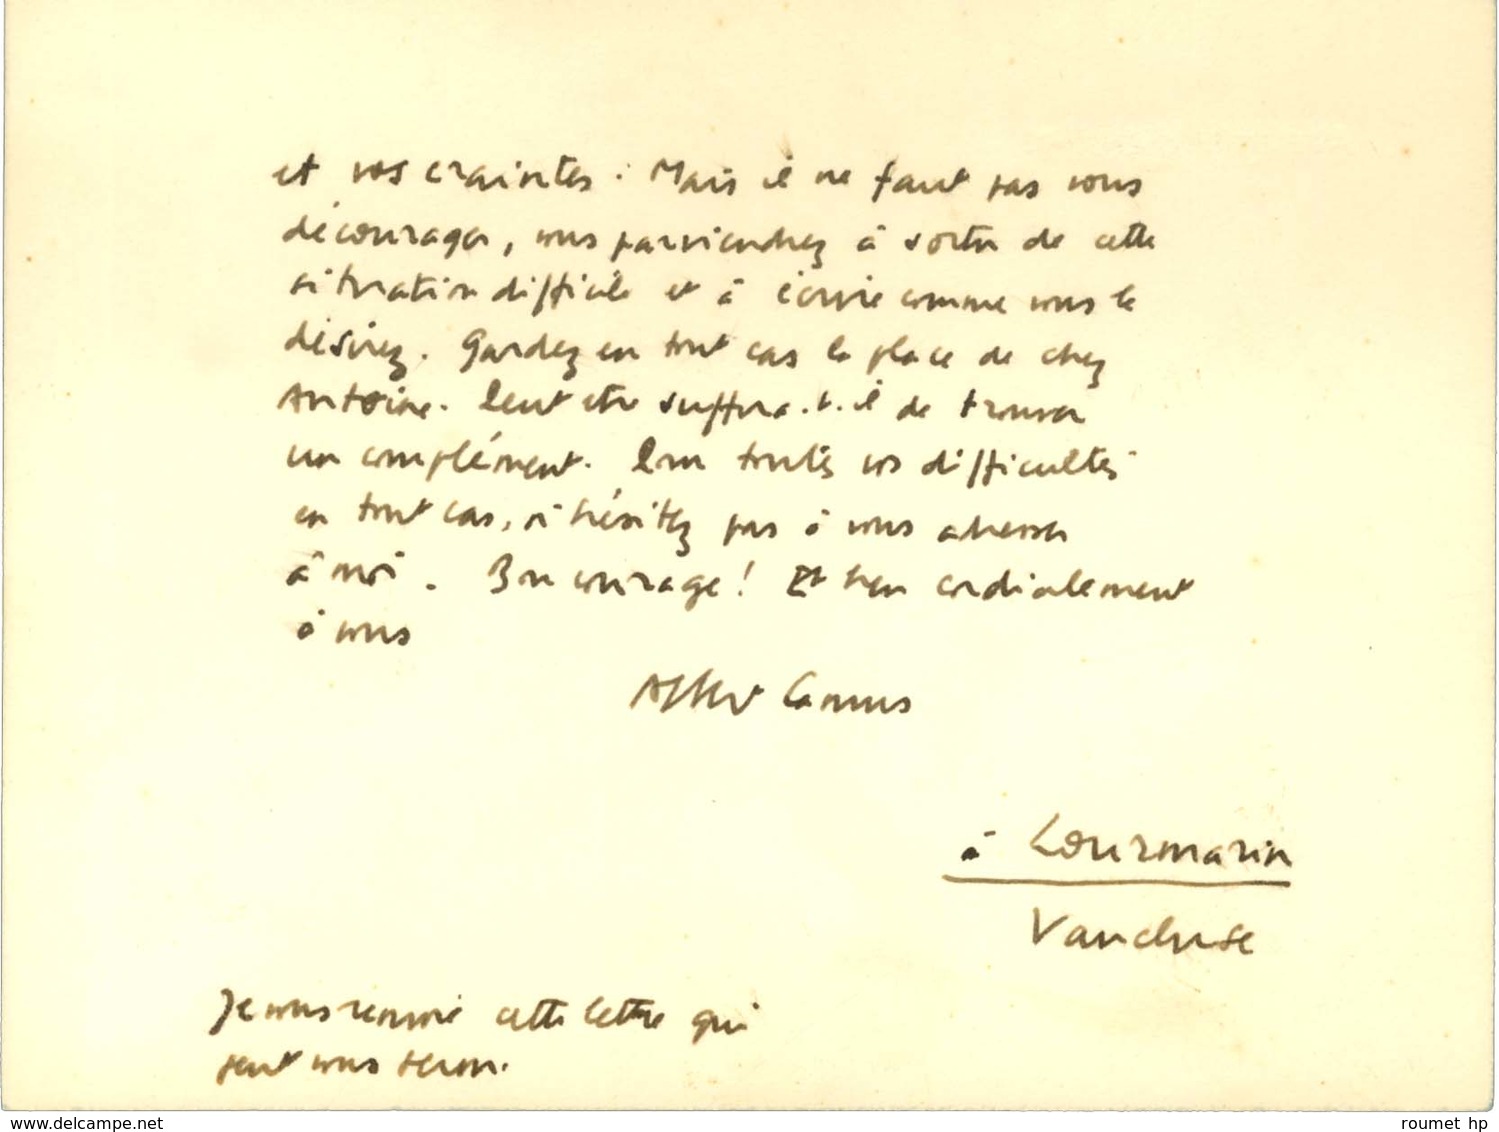 et vos craintes. Mais il ne faut pas vous
décourager, vous parviendrez à sortir de cette
situation difficile et à écrire comme vous le
désirez. Gardez en tout cas la place de chez
Antoine. Peut etre suffira-t-il de trouver
un complément. Pour toutes vos difficultés
en tout cas, n'hésitez pas à vous adresser
à moi. Bon courage! Et bien cordialement
à vous
Albert Camus
à Lourmarin
Vaucluse
Je vous renvoie cette lettre qui
peut vous servir.
www.delcampe.net
roumet hp